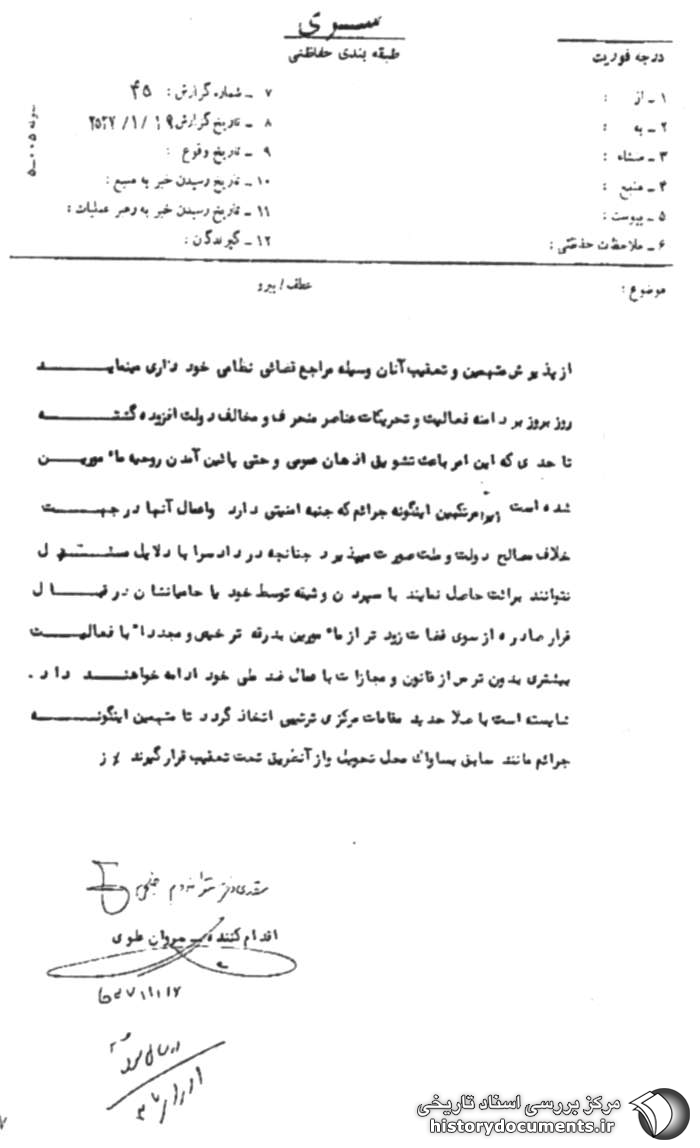 ســری
طبقه بندی حفاظتی
درجه فوریت
۱ ـ از :
۲ ـ به :
۳ ـ منشاء :
۴ ـ منبع :
۵ ـ پیوست :
۶ ـ ملاحظات حفاظتی :
۷ ـ شماره گزارش : ۴۵
۸ ـ تاریخ گزارش ۲۵۳۷/۱/۱۹
۹ ـ تاریخ وقوع :
۱۰ ـ تاریخ رسیدن خبر به منبع :
۱۱ ـ تاریخ رسیدن خبر به رهبر عملیات :
۱۲ ـ گیرندگان :
موضوع :
عطف / پیرو
از پذیرش متهمین و تعقیب آنان وسیله مراجع قضائی نظامی خود داری مینماید
روز بروز بر دامنه فعالیت و تحریکات عناصر منحرف و مخالف دولت افزوده گشته
تا حدی که این امر باعث تشویش اذهان عمومی و حتی پائین آمدن روحیه مامورین
شده است زیرا مرتکبین اینگونه جرائم که جنبه امنیتی دارد واعمال آنها در جهت
خلاف مصالح دولت و ملت صورت میپذیرد چنانچه در دادسرا با دلایل
نتوانند برائت حاصل نمایند با سپردن وثیقه توسط خود یا حامیانشان در قبال
قرار صادره از سوی قضات زودتر از مامورین بدرقه ترخیص و مجددا" با فعالیت
بیشتری بدون ترس از قانون و مجازات باعمال ضد ملی خود ادامه خواهند داد .
شایسته است با صلاحدید مقامات مرکزی ترتیبی اتخاذ گردد تا متهمین اینگونه
جرائم مانند سابق بساواک محل تحویل واز آنطریق تحت تعقیب قرار گیرند
اقدام کننده ـ مروان علوی
مرکز بررسی اسناد تاریخی
historydocuments.ir